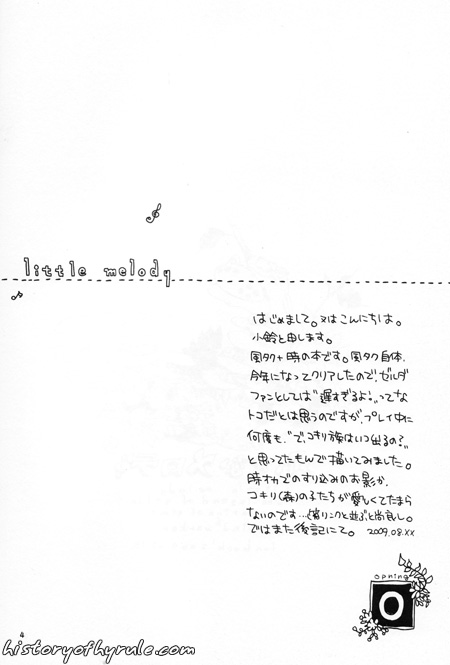 little melody
はじめまして。又はこんにちは。
小鈴と申します。
風タク+時の本です。風タク自体、
今年になってクリアしたので、ゼルダ
ファンとしては“遅すぎるよ!”ってな
トコだとは思うのですが、プレイ中に
何度も、“で、コキリ族はいつ出るの?”
と思ってたもんで描いてみました。
時オカでのすり込みのお影か、
コキリ(森)の子たちが愛しくてたまら
ないのです…リンクと並ぶと尚良し。
ではまた後記にて。 2009.08.XX
opning
O
4
historyofhyrule.com